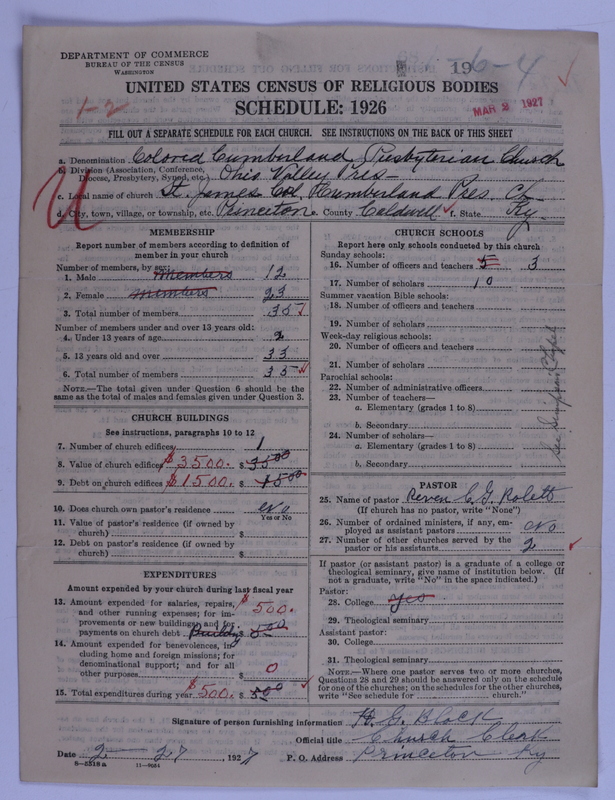 DEPARTMENT OF COMMERCE
BUREAU OF THE CENSUS
WASHINGTON
19
6-4
UNITED STATES CENSUS OF RELIGIOUS BODIES
1-2
SCHEDULE: 1926
MAR 2 1927
FILL OUT A SEPARATE SCHEDULE FOR EACH CHURCH. SEE INSTRUCTIONS ON THE BACK OF THIS SHEET
a. Denomination Colored Cumberland Presbyterian Church
b. Division (Association, Conference, Diocese, Presbytery, Synod, etc.) Ohio Valley Pres-
c. Local name of church St. James Col. Cumberland Pres. Ch
d. City, town, village, or township, etc. Princeton e. County Caldwell f. State Ky.
MEMBERSHIP
Report number of members according to definition of
member in your church
Number of members, by sex:
1. Male Members 12
2. Female Members 23
3. Total number of members 35
Number of members under and over 13 years old:
4. Under 13 years of age 2
5. 13 years old and over 33
6. Total number of members 35
NOTE.—The total given under Question 6 should be the
same as the total of males and females given under Question 3.
CHURCH BUILDINGS
See instructions, paragraphs 10 to 12
7. Number of church edifices 1
8. Value of church edifices $3500. $ 3500
9. Debt on church edifices $1500. $ 1500
10. Does church own pastor's residence No
Yes or No
11. Value of pastor's residence (if owned by
church) $
12. Debt on pastor's residence (if owned by
church) $
EXPENDITURES
Amount expended by your church during last fiscal year
13. Amount expended for salaries, repairs,
and other running expenses; for im-
provements or new buildings; and for
payments on church debt $ 500.
14. Amount expended for benevolences, in-
cluding home and foreign missions; for
denominational support; and for all
other purposes $ 0
15. Total expenditures during year $500. $ 500
CHURCH SCHOOLS
Report here only schools conducted by this church
Sunday schools:
16. Number of officers and teachers 5 3
17. Number of scholars 10
Summer vacation Bible schools:
18. Number of officers and teachers
19. Number of scholars
Week-day religious schools:
20. Number of officers and teachers
21. Number of scholars
Parochial schools:
22. Number of administrative officers
23. Number of teachers—
a. Elementary (grades 1 to 8)
b. Secondary
24. Number of scholars—
a. Elementary (grades 1 to 8)
b. Secondary
See Simpson Chapel
PASTOR
25. Name of pastor Reven C. G.
(If church has no pastor, write "None")
26. Number of ordained ministers, if any, em-
ployed as assistant pastors No
27. Number of other churches served by the
pastor or his assistants 2
If pastor (or assistant pastor) is a graduate of a college or
theological seminary, give name of institution below. (If
not a graduate, write "No" in the space indicated.)
Pastor:
28. College yes
29. Theological seminary
Assistant pastor:
30. College
31. Theological seminary
NOTE.—Where one pastor serves two or more churches,
Questions 28 and 29 should be answered only on the schedule
for one of the churches; on the schedules for the other churches,
write "See schedule for ____ church."
Signature of person furnishing information H. G. Black
Official title Church Clerk
Date 2 - 27, 1927 P. O. Address Princeton Ky
8-5318a 11-9054